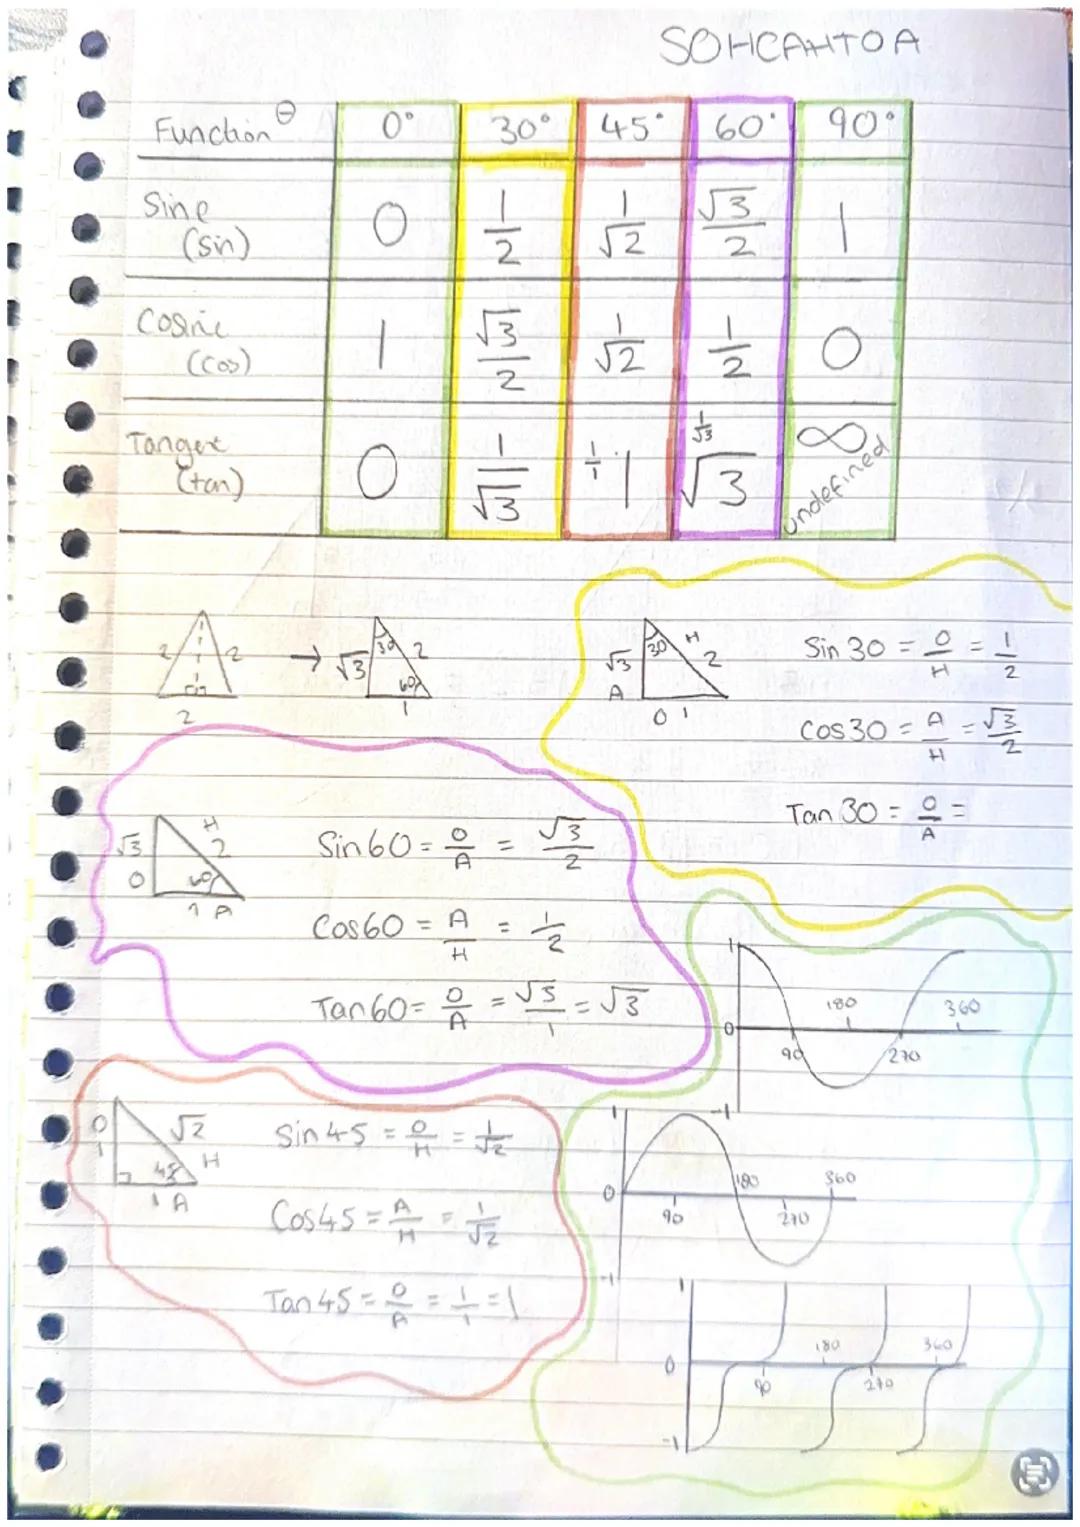 SOHCAHTOA
Function θ 0° 30° 45° 60° 90°
Sine (sin) 0 1/2 1/√2 √3/2 1
Cosine (cos) 1 √3/2 1/√2 1/2 0
Tangent (tan) 0 1/√3 1/1 1 1/√3 √3 ∞ undefined
2 2 2 → √3 30 2 60 1
√3 30 H 2 A O 1
Sin 30 = O/H = 1/2
Cos 30 = A/H = √3/2
Tan 30 = O/A =
√3 H 2 O 60 1 A
Sin 60 = O/A = √3/2
Cos 60 = A/H = 1/2
Tan 60 = O/A = √3/1 = √3
1 0 90 180 270 360 -1
O 1 √2 H 45 1 A
Sin 45 = O/H = 1/√2
Cos 45 = A/H = 1/√2
Tan 45 = O/A = 1/1 = 1
1 0 90 180 270 360 -1
1 0 90 180 270 360 -1